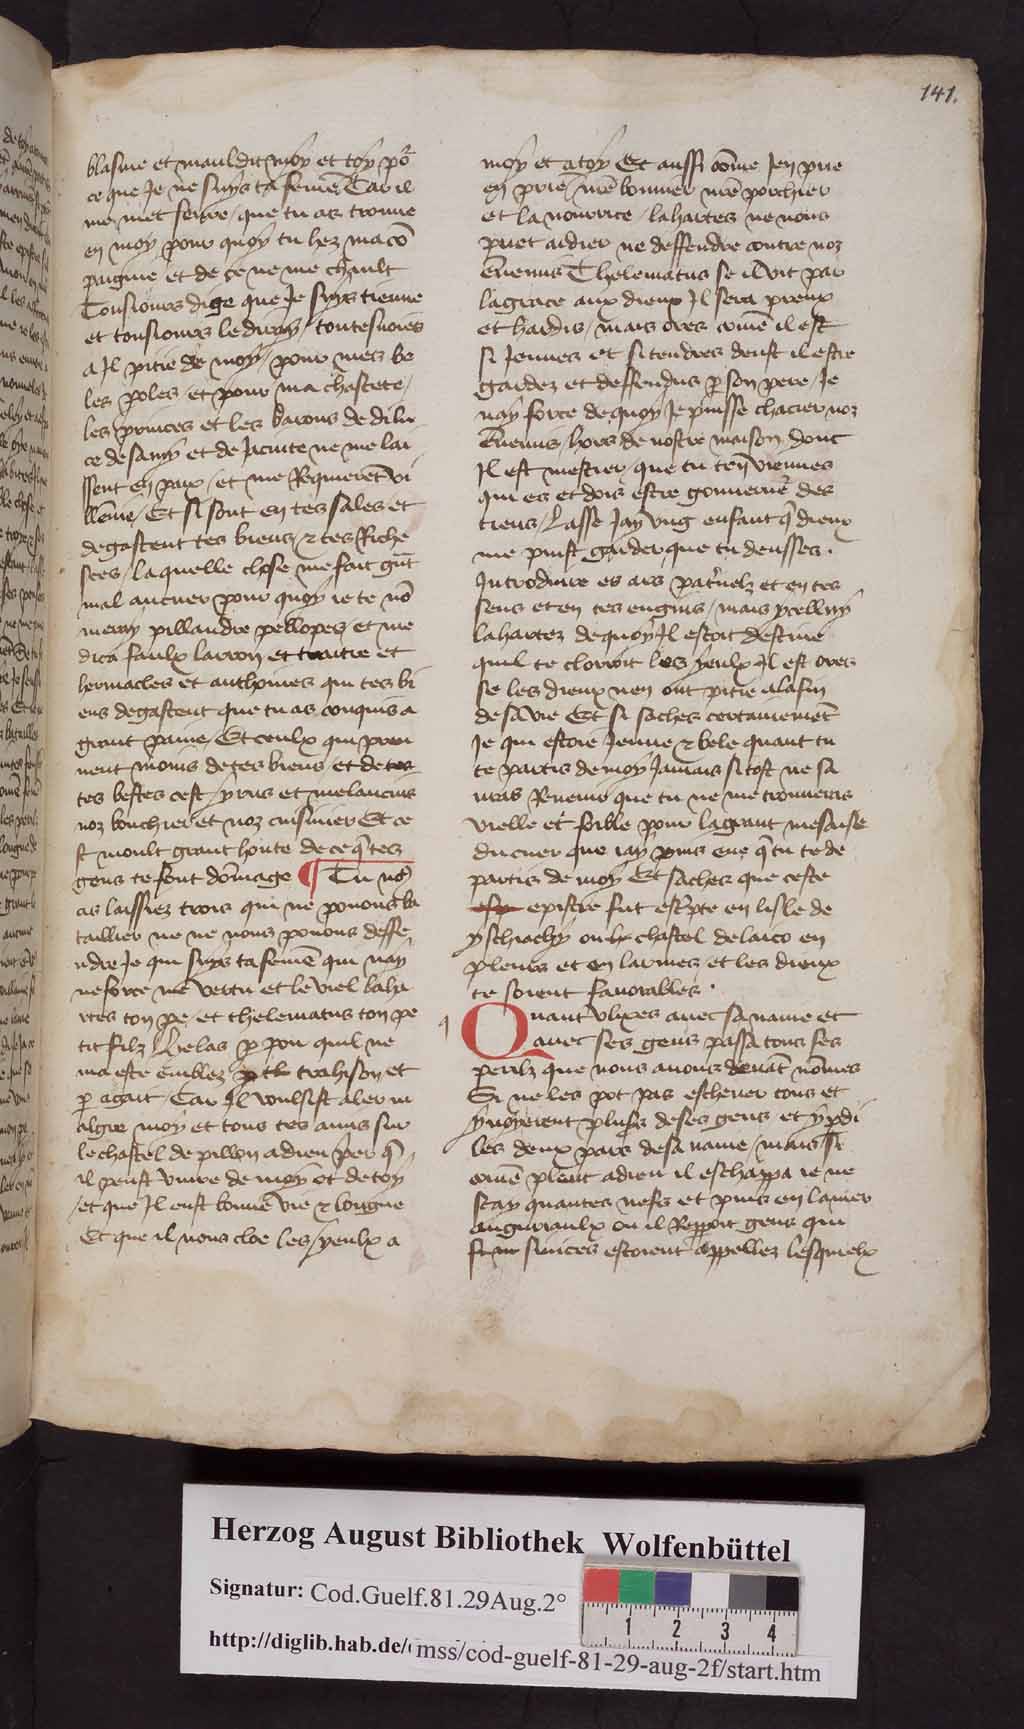 141.
blasme et mauldit moy et toy po^r
ce que Je ne suys ta feme͂ Car il
me met seure / que tu as trouue
en moy pour quoy tu hez ma co͂
paignie et de ce ne me chault
Tousiours dige que Je suys tienne
et tousiours le diray / toutesuoies
a Jl pitie de moy / pour mes be
les poles / et pour ma chastete /
les princes et les barons de dilu
ce de samy et de Jacinte ne me lai
ssent en paix / et me Requierent vi
llenie / Et si sont en tes sales et
degastent tes biens / et tes Riche
sces / la quelle chose me fait gra͂t
mal au cuer pour quoy ie te no͂
meray pillandre pellopes et me
dica faulx larron et traitre et
hermacles et anthoines qui tes bi
ens degastent que tu as conquis a
grant paine / Et ceulx qui pren
nent moins de tes biens et de tes
tes bestes cest / yrus et melancius
noz bouchier et noz cuisinier Et ce
st moult grant honte de ce q͂ tes
gens te font do͂mage ¶ Tu no^s
as laissiez trois qui ne pouons ba
taillier ne ne nous pouons deffe
ndre Je qui suys ta feme͂ qui nay
ne force ne vertu et le viel laha
rtes ton pe͂ / et thelematus ton pe
tit filz helas p pou quil ne
ma este emblez p trahison et
p agait / Car Jl voulsist aler m
algre moy et tous tes amis sur
le chastel de pillon a dieu pier q͂
il peust viure de moy et de toy
et que Jl eust bonne vie et longue
Et que il nous cloe les / yeulx a
moy et a toy Et aussi co͂me Jen prie
en prie / nre͂ bonnier nre͂ porchier
et la nourrice / lahartes ne nous
puet aidier ne deffendre contre noz
ennemis Thelematus se il vit par
la grace aux dieux Jl sera preux
et hardis / mais ores come͂ il est
si Jeunes et si tendres deust il estre
gardez et deffendus p son pere / Je
nay force de quoy Je puisse chacier noz
ennemis / hors de nostre maison / donc
Jl est mestier / que tu ten viennes
qui es et dois estre gouuerne^r des
tiens / Lasse Jay vng enfant q͂ dieux
me puist garder que tu deusses .
Introduire es ars pat͂nelz et en tes
sens et en tes engins / mais ycelluy
lahartez de quoy Jl estoit destine
quil te clorroit les yeulx Jl est ores
se les dieux nen ont pitie a la fin
de sa vie Et si saches certainement
Je qui estoie Jeune et bele quant tu
te partis de moy Jamais si tost ne sa
uras Reuenir que tu ne me trouueras
vielle et foible pour la grant mesaise
du cuer que iay puis eue q͂ tu te de
partis de moy Et saches que ceste
epistre fut escripte en lisle de
yschiachy ou chastel de laico en
pleurs et en larmes et les dieux
te soient fauorables .
Quant vlixes auec sa naue et
auec ses gens passa tous ses
perilz que nous auons deuant no͂mes
Si ne les pot pas escheuer tous et
y noyerent plus^rs de ses gens et y pdi
les deux pars de sa naue / mais si
come͂ pleut a dieu il eschappa ie ne
scay quantes nefs et puis en la mer
ou il gens qui
sinices estoient appellez lesquielx
Herzog August Bibliothek Wolfenbüttel
Signatur: Cod.Guelf.81.29Aug.2°
http://diglib.hab.de/mss/cod-guelf-81-29-aug-2f/start.htm
1 2 3 4